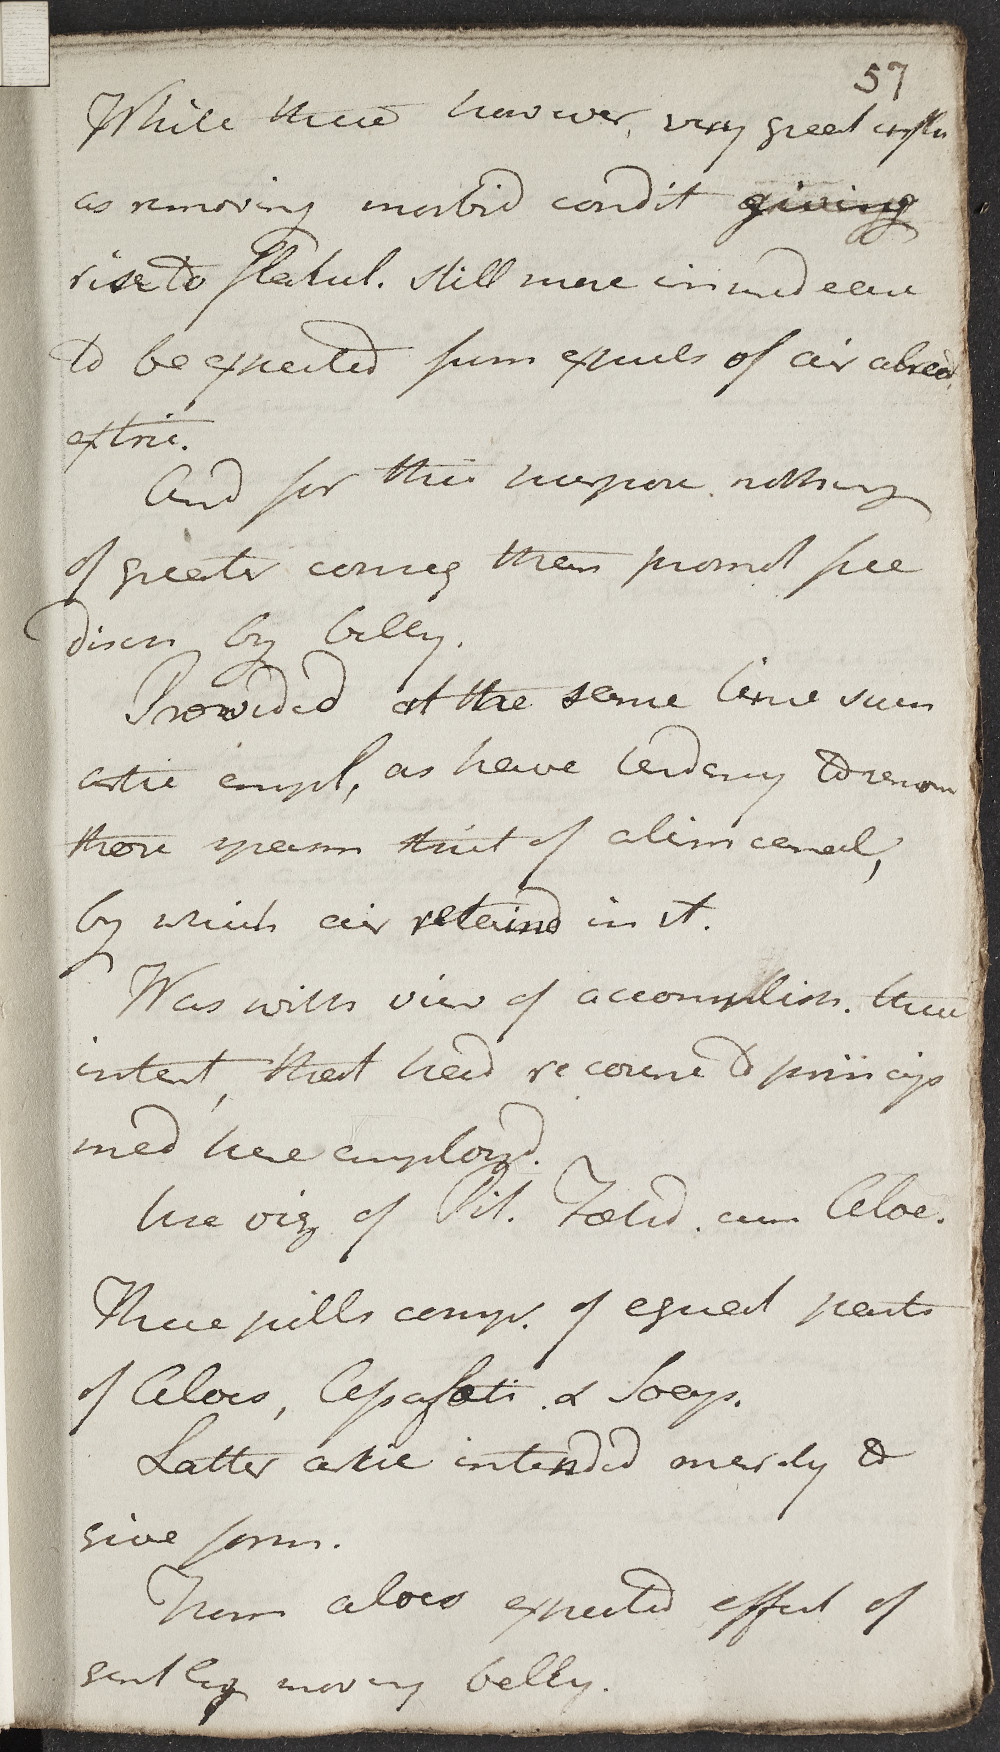 57
While these however, very great
as removing morbid condit giving
rise to flatul. still more immed
to be expected from expuls of air alread.
extric.
And for this purpose, nothing
of greater conseq than promot free
disch by belly.
Provided at the same time such
artic empl, as have tendency to remov
those spasm of alim canal,
by which air retaind in it.
Was with view of accomplish. these
intent, that had recourse to princip
med here employd.
Use viz of Pil. Foetid. cum Aloe.
These pills comp. of equal parts
of Aloes, Asafoeti. & Soap.
Latter artic intended merely to
give form.
From aloes expected effect of
gently moving belly.